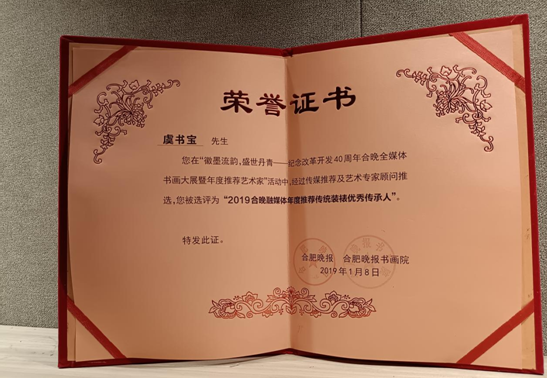 荣誉证书
虞书宝 先生
您在“徽墨流韵，盛世丹青——纪念改革开发40周年合晚全媒体
书画大展暨年度推荐艺术家”活动中，经过传媒推荐及艺术专家顾问推
选，您被选评为“2019合晚融媒体年度推荐传统装裱优秀传承人”。
特发此证。
合肥晚报 合肥晚报书画院
2019年1月8日